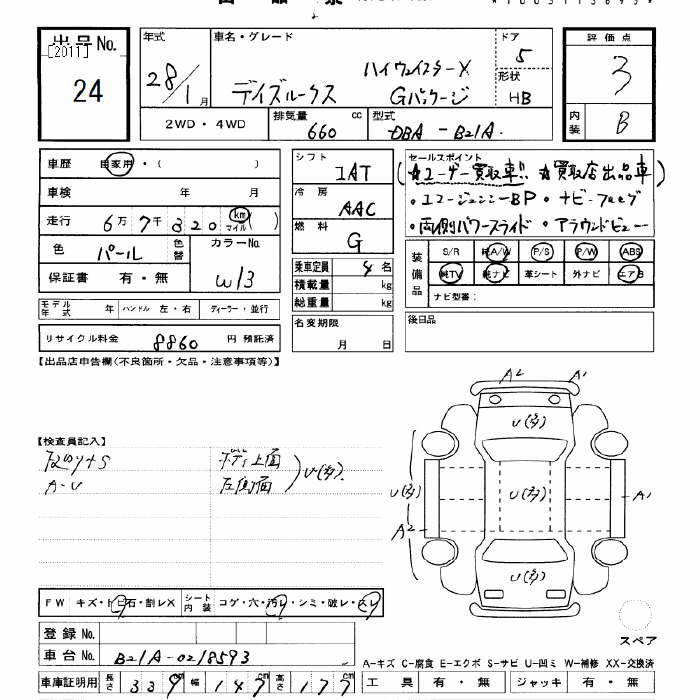 出品No.
[2011]
24
年式
28/1月
車名・グレード
デイズルークス
ハイウェイスターX
Gパッケージ
ドア
5
形状
HB
評価点
3
内装
B
2WD・4WD
排気量
660 cc
型式
DBA - B21A
車歴 自家用・( )
車検 年 月
走行 6万7千320 km マイル
色 パール 色替
カラーNo.
W13
保証書 有・無
シフト
IAT
冷房
AAC
燃料
G
乗車定員 4名
積載量 kg
総重量 kg
セールスポイント
☆ユーザー買取車!! ☆買取店出品車
・エマージェンシーBP ・ナビ・フルセグ
・両側パワースライド ・アラウンドビュー
装備品
S/R 純A/W P/S P/W ABS
純TV 純ナビ 革シート 外ナビ エアB
ナビ型番:
モデル年式 年 ハンドル 左・右 ディーラー・並行
リサイクル料金 8860 円 預託済
名変期限
月 日
後日品
【出品店申告欄(不良箇所・欠品・注意事項等)】
【検査員記入】
A-U
ボディ上面
左側面
U(多)
A2 A1
U(多)
U(多) U(多) A1
A2
U(多)
スペア
FW キズ・トビ石・割レX シート内装 コゲ・穴・汚レ・シミ・破レ・スレ
登録No.
車台No. B21A-0218593
車庫証明用 長さ 339cm 幅 147cm 高さ 177cm
A-キズ C-腐食 E-エクボ S-サビ U-凹ミ W-補修 XX-交換済
工具 有・無 ジャッキ 有・無